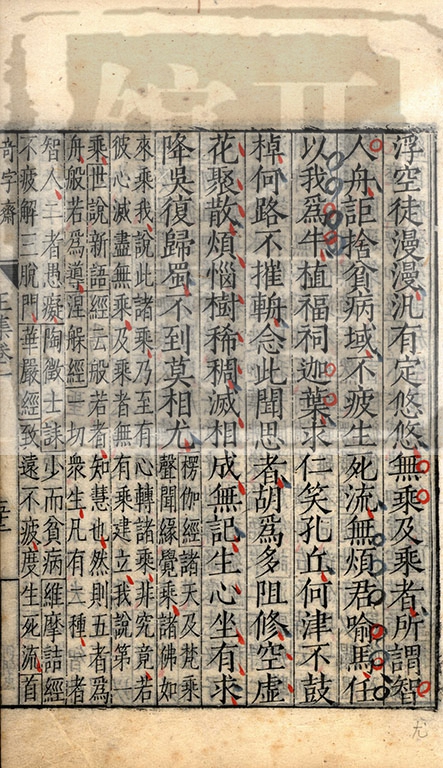 浮空徒漫漫汎有定悠悠無乘及乘者所謂智
人舟詎捨貧病域不疲生死流無煩君喻馬任
以我爲牛植福祠迦葉求仁笑孔丘何津不鼓
棹何路不摧輈念此聞思者胡爲多阻修空虛
花聚散煩惱樹稀稠滅相成無記生心坐有求
降吳復歸蜀不到莫相尤
楞伽經諸天及梵乘
聲聞緣覺乘諸佛如
來乘我說此諸乘乃至有心轉諸乘非究竟若
彼心滅盡無乘及乘者無有乘建立我說第一
乘世說新語經云般若者知慧也然則五者爲
舟般若爲導涅槃經一切衆生凡有二種一者
智人二者愚癡陶徵士誄少而貧病維摩詰經
不疲解三脫門華嚴經致遠不疲度生死流首
奇字齋